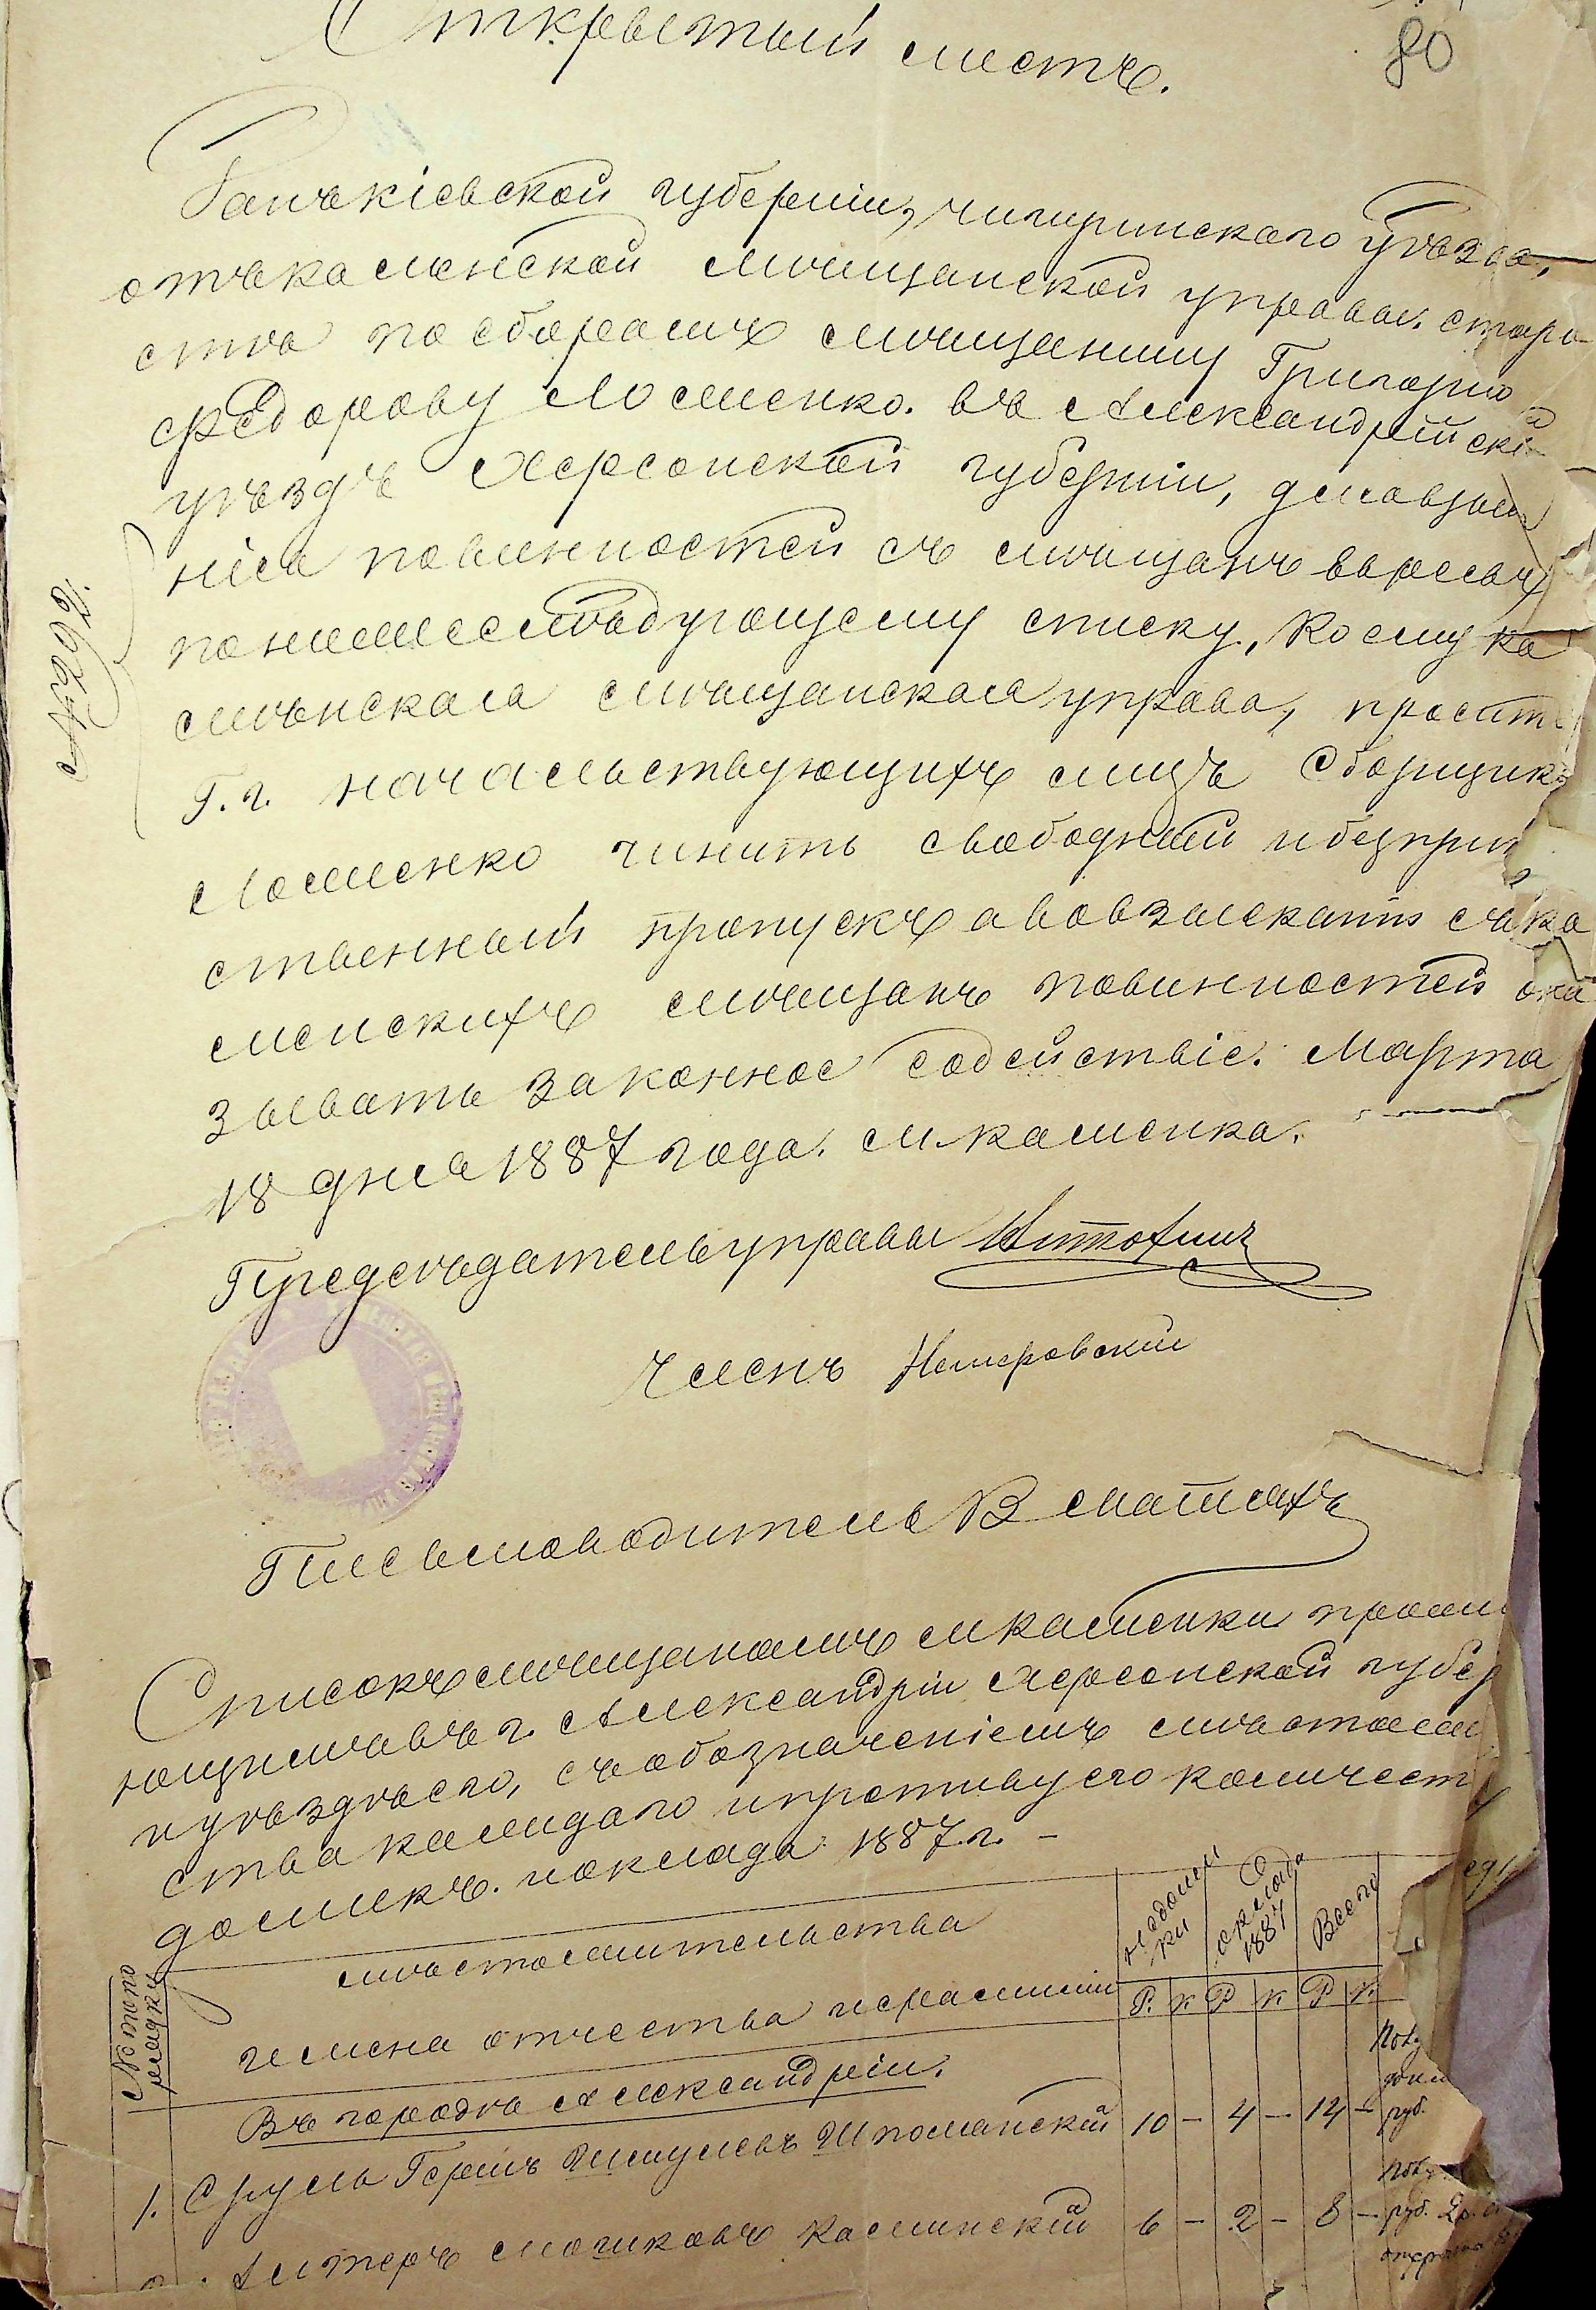 Открытый листъ.
80
Данъ кіевской губерніи, чигиринскаго уѣзда,
отъ каменской мѣщанской управы. старо
ста по сборамъ мѣщанину Григорію
Федорову Ломенко. въ Александрійскій
уѣздъ Херсонской губерніи, для взыма
нія повинностей съ мѣщанъ
по нижеслѣдующему списку, Коему ка
мѣнская мѣщанская управа, просит
Г. г. начальствующихъ лицъ Сборщик
Ломенко чинить свободный и безпри
ственный пропускъ а во взыскать съ ка
менскихъ мѣщанъ повинностей ока
зывать законное содействіе. Марта
18 дня 1887 года. м. каменка.
Предсѣдатель управы
Членъ Немировскій
Письмоводитель В
Списокъ мѣщанамъ м каменки прожи
ющимъ въ г. Александріи Херсонской губер
и уѣздѣ его, съ обозначеніемъ мѣстожи
ства каждаго и противу его количест
доликъ. иоклада 1887 г. –
№ по по рядку
мѣстожительства
имена отчества и фамиліи
недоим ки
Оклада 1887
Всего
Р. К Р К Р К.
Въ городѣ Александріи.
1. Сруль Гершъ Шмулевъ Шполянскій 10 – 4 – 14 –
руб.
Алтеръ Мошковъ Каминскій 6 – 2 – 8 –
руб. 2 р.